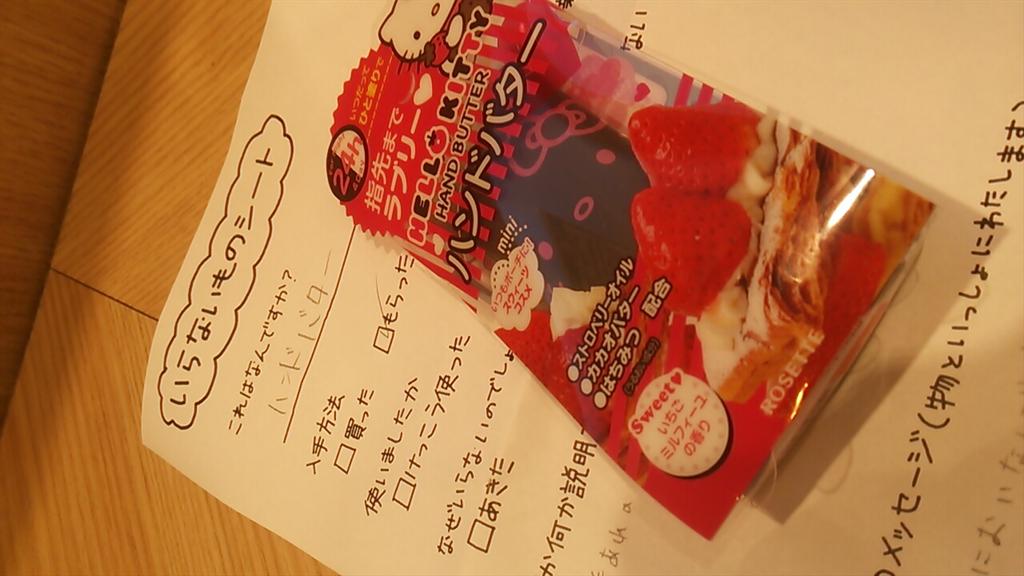 いらないものシート
これはなんですか?
ハンドバター
入手方法
□買った
□もらった
使いましたか
□けっこう使った
なぜいらないのでしょ
□あきた
か何か説明
ない
のメッセージ(物といっしょにわたします)
においな
いつだって
ひと塗りで
24h
指先まで
ラブリー
HELLO KITTY
HAND BUTTER
ハンドバター
mini
●ストロベリーオイル
●カカオバター
●はちみつ
配合
Sweet
いちご
ミルフィーユ
の香り
ROSETTE